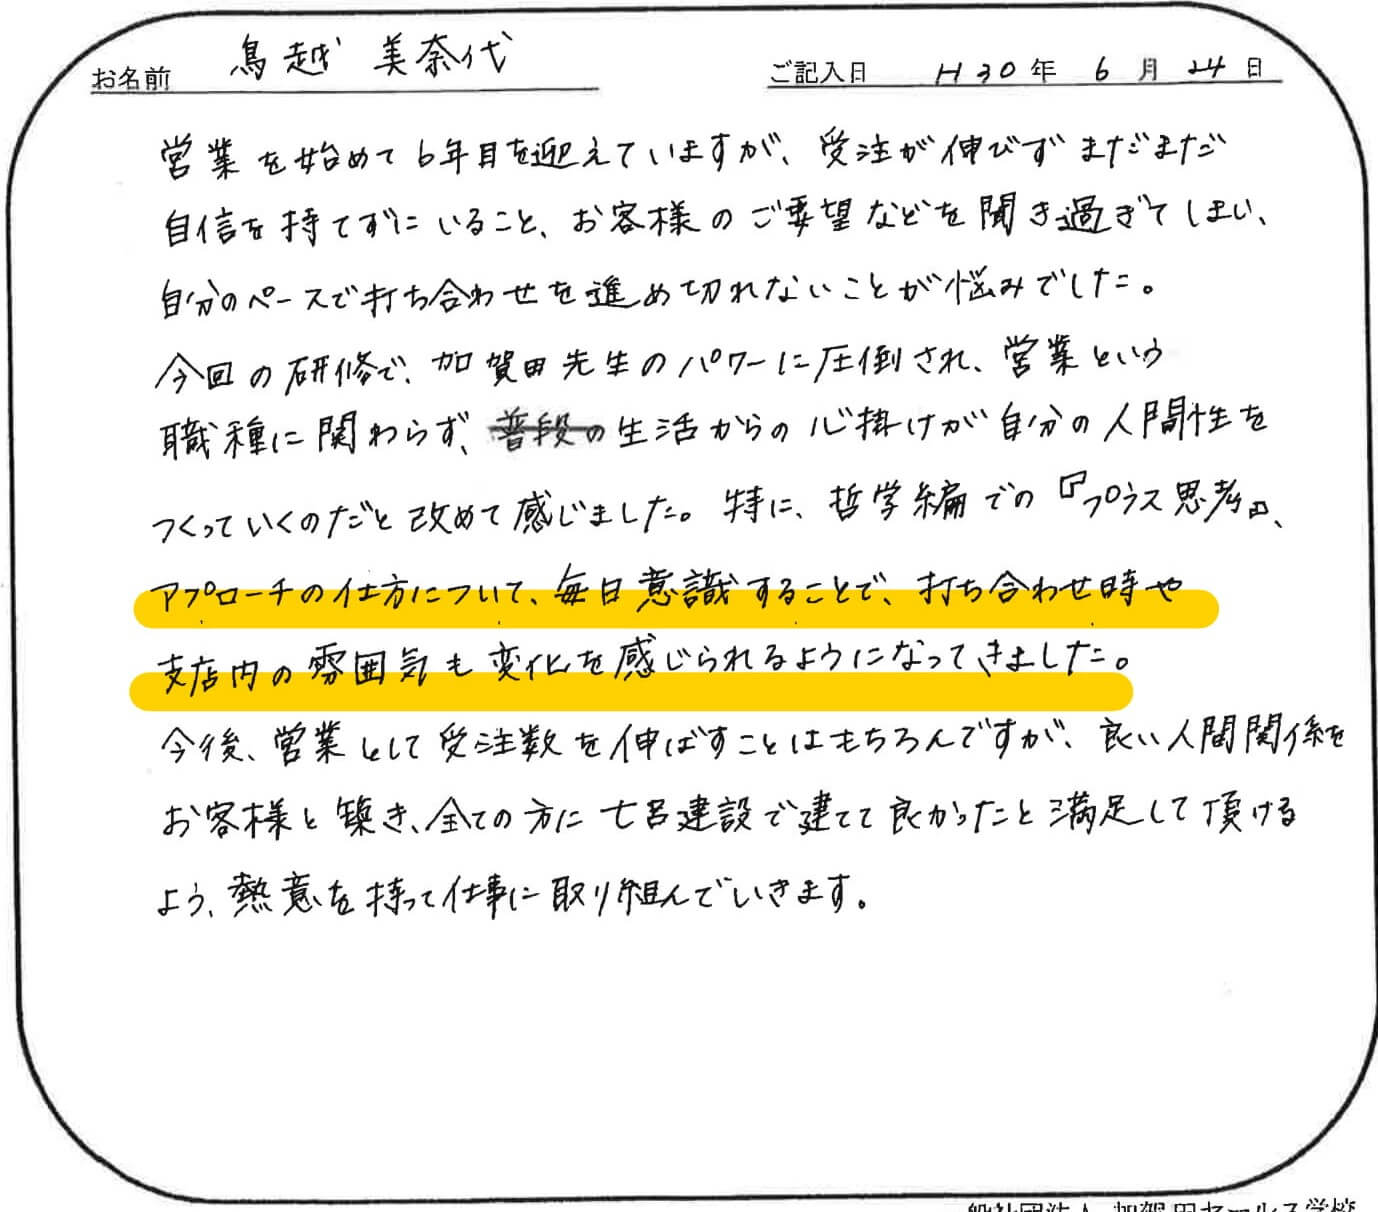 お名前 鳥越 美奈代 ご記入日 H30年 6月 24日
営業を始めて6年目を迎えていますが、受注が伸びずまだまだ
自信を持てずにいること、お客様のご要望などを聞き過ぎてしまい、
自分のペースで打ち合わせを進め切れないことが悩みでした。
今回の研修で、加賀田先生のパワーに圧倒され、営業という
職種に関わらず、普段の生活からの心掛けが自分の人間性を
つくっていくのだと改めて感じました。特に、哲学編での『プラス思考』、
アプローチの仕方について、毎日意識することで、打ち合わせ時や
支店内の雰囲気も変化を感じられるようになってきました。
今後、営業として受注数を伸ばすことはもちろんですが、良い人間関係を
お客様と築き、全ての方に七呂建設で建てて良かったと満足して頂ける
よう、熱意を持って仕事に取り組んでいきます。
一般社団法人 加賀田セールス学校